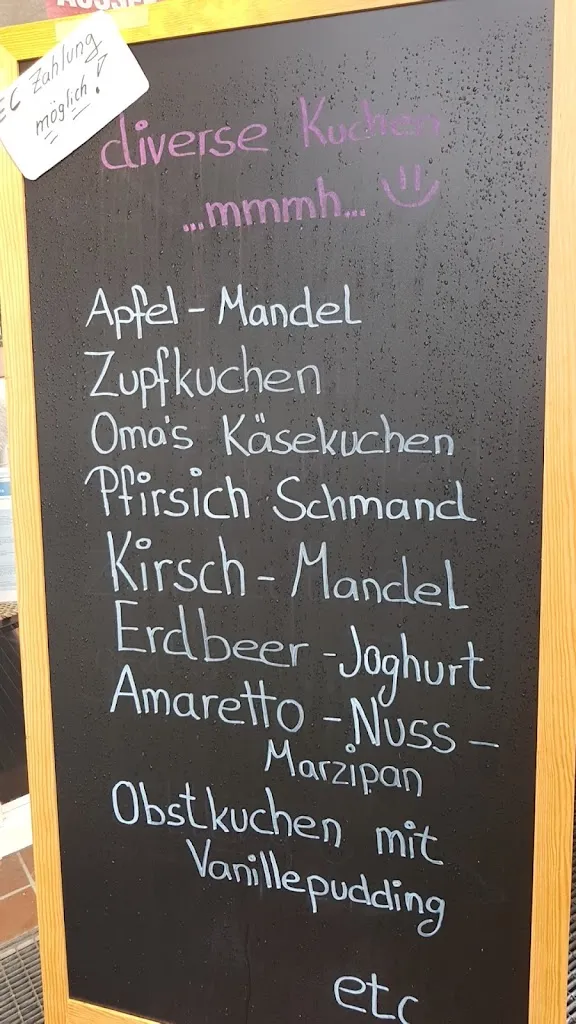 EC Zahlung
möglich!
diverse Kuchen
...mmmh...
Apfel - Mandel
Zupfkuchen
Oma's Käsekuchen
Pfirsich Schmand
Kirsch - Mandel
Erdbeer - Joghurt
Amaretto - Nuss -
Marzipan
Obstkuchen mit
Vanillepudding
etc